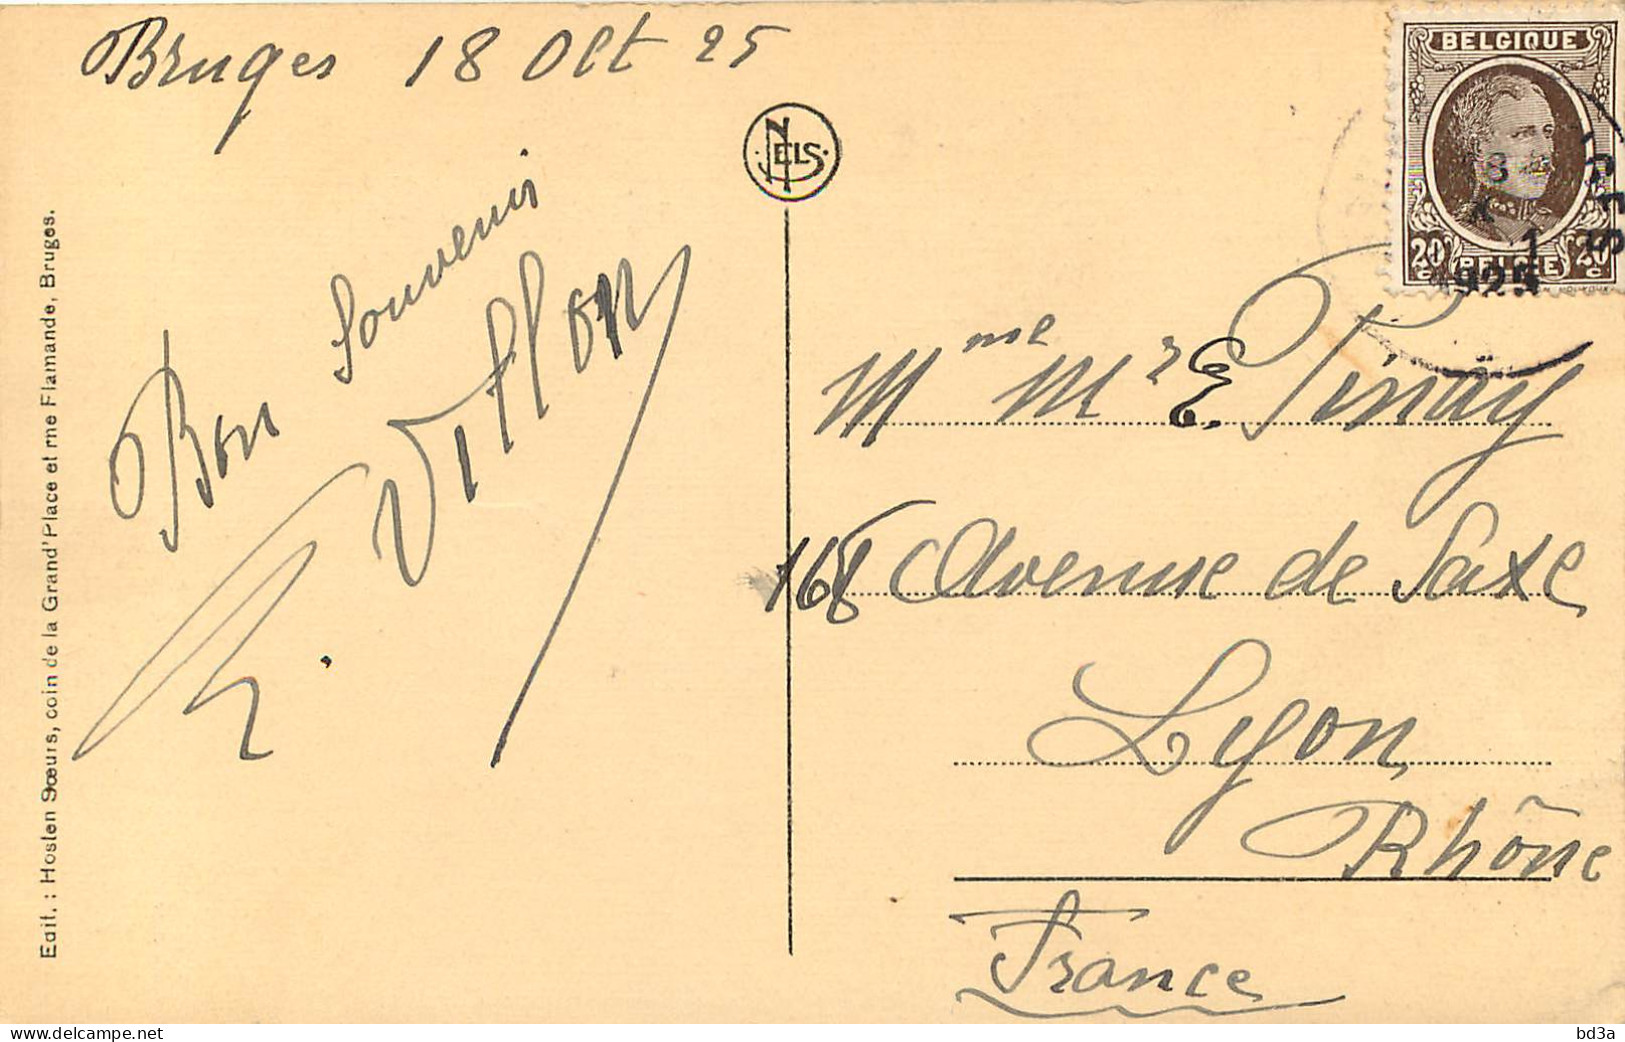 Bruges 18 Oct 25
Bon
Souvenir
Villon
NELS
Edit. : Hosten Sœurs, coin de la Grand'Place et rne Flamande, Bruges.
BELGIQUE
20c BELGIE 20c
1925
Mme Mr E. Pinay
168 Avenue de Saxe
Lyon
Rhône
France
bd3a